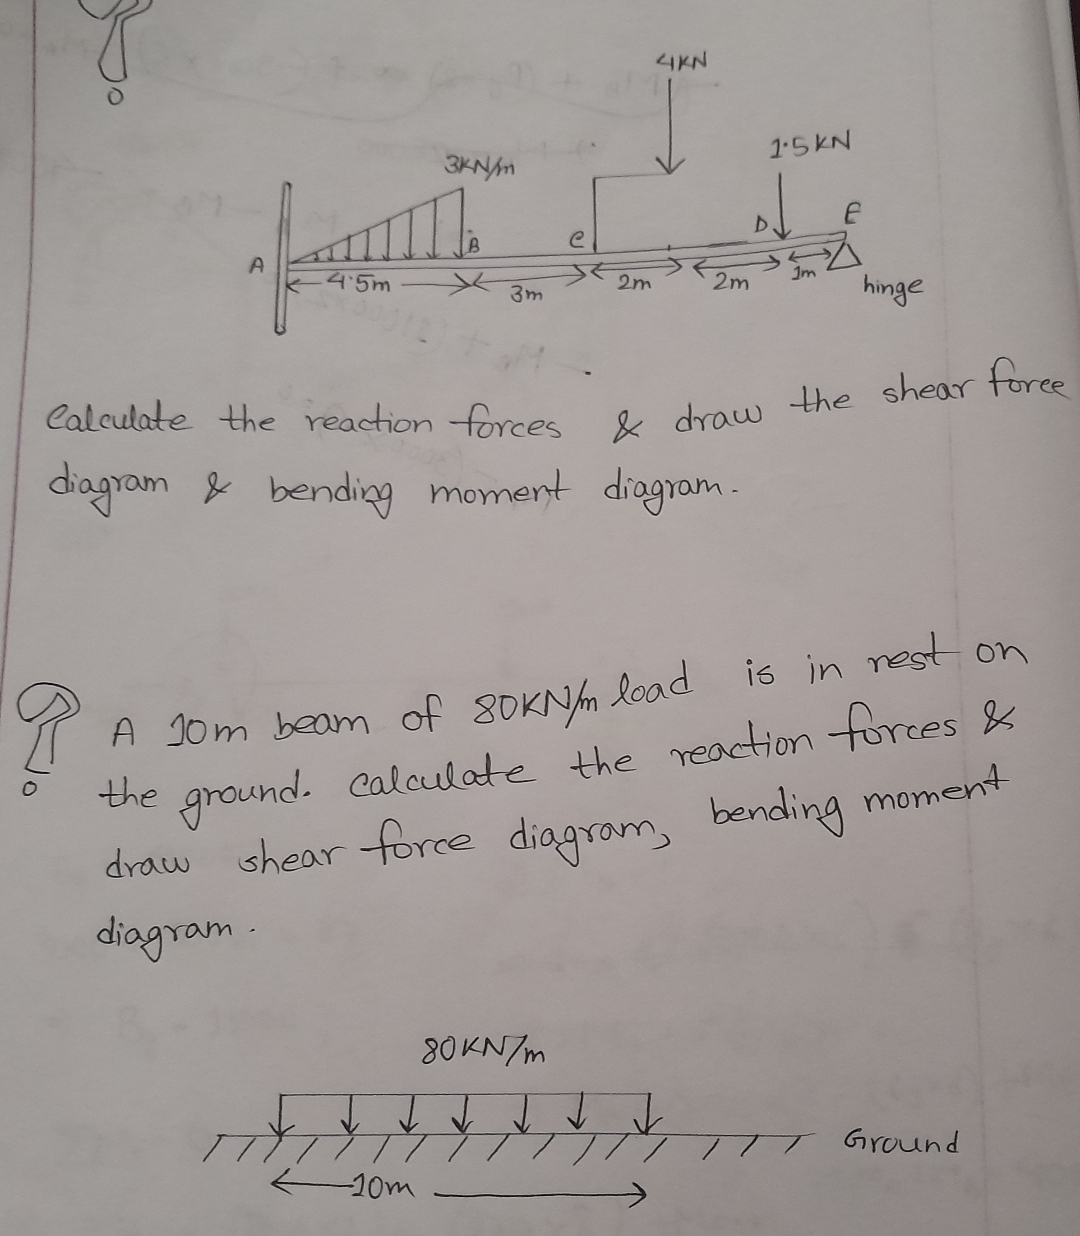 4KN
1.5KN
3KN/m
A
B
C
D
E
4.5m
3m
2m
2m
1m
hinge
Calculate the reaction forces & draw the shear force
diagram & bending moment diagram.
A 10m beam of 80KN/m load is in rest on
the ground. Calculate the reaction forces &
draw shear force diagram, bending moment
diagram.
80KN/m
Ground
10m